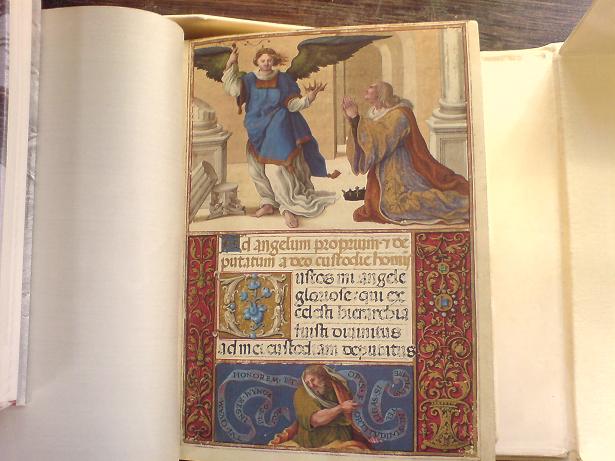 Ad angelum proprium ⁊ de
putatum a deo custodie homi
ustos mi angele
gloriose: qui ex
celesti hierarchia
fuisti divinitus
ad mei custodiam deputatus
HONOREM ET